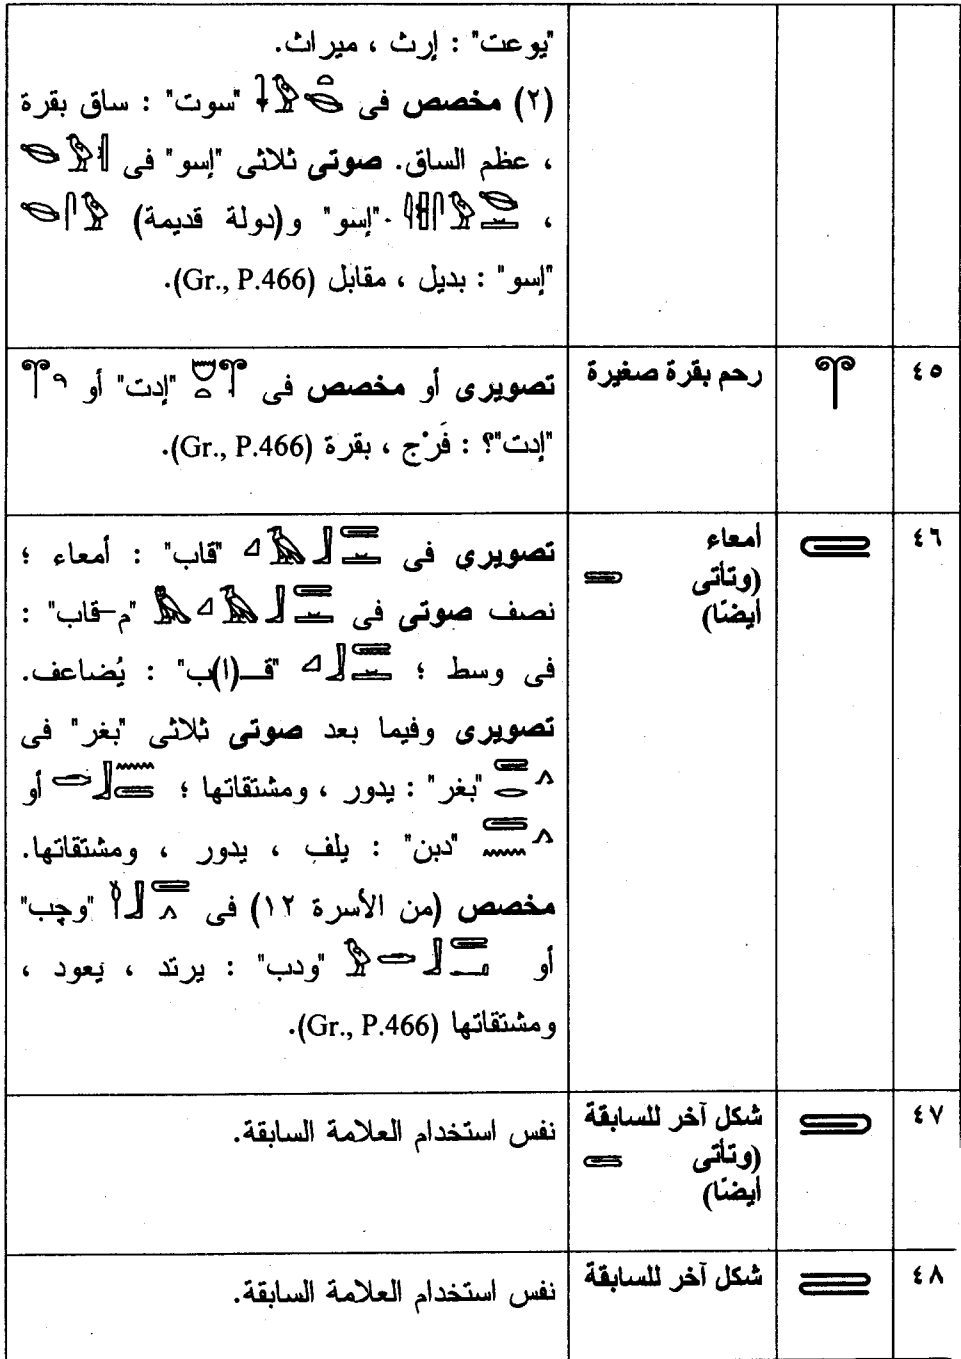 "يوعت" : إرث ، ميراث.
(٢) مخصص فى "سوت" : ساق بقرة
، عظم الساق. صوتى ثلاثى "إسو" فى
، "إسو" و(دولة قديمة)
"إسو" : بديل ، مقابل (Gr., P.466).
٤٥ رحم بقرة صغيرة تصويرى أو مخصص فى "إدت" أو
"إدت"؟ : فَرْج ، بقرة (Gr., P.466).
٤٦ أمعاء
(وتأتى
أيضًا)
تصويرى فى "قاب" : أمعاء ؛
نصف صوتى فى "م-قاب" :
فى وسط ؛ "قـ(ا)ب" : يُضاعف.
تصويرى وفيما بعد صوتى ثلاثى "بغر" فى
"بغر" : يدور ، ومشتقاتها ؛ أو
"دبن" : يلف ، يدور ، ومشتقاتها.
مخصص (من الأسرة ١٢) فى "وچب"
أو "ودب" : يرتد ، يعود ،
ومشتقاتها (Gr., P.466).
٤٧ شكل آخر للسابقة
(وتأتى
أيضًا)
نفس استخدام العلامة السابقة.
٤٨ شكل آخر للسابقة
نفس استخدام العلامة السابقة.